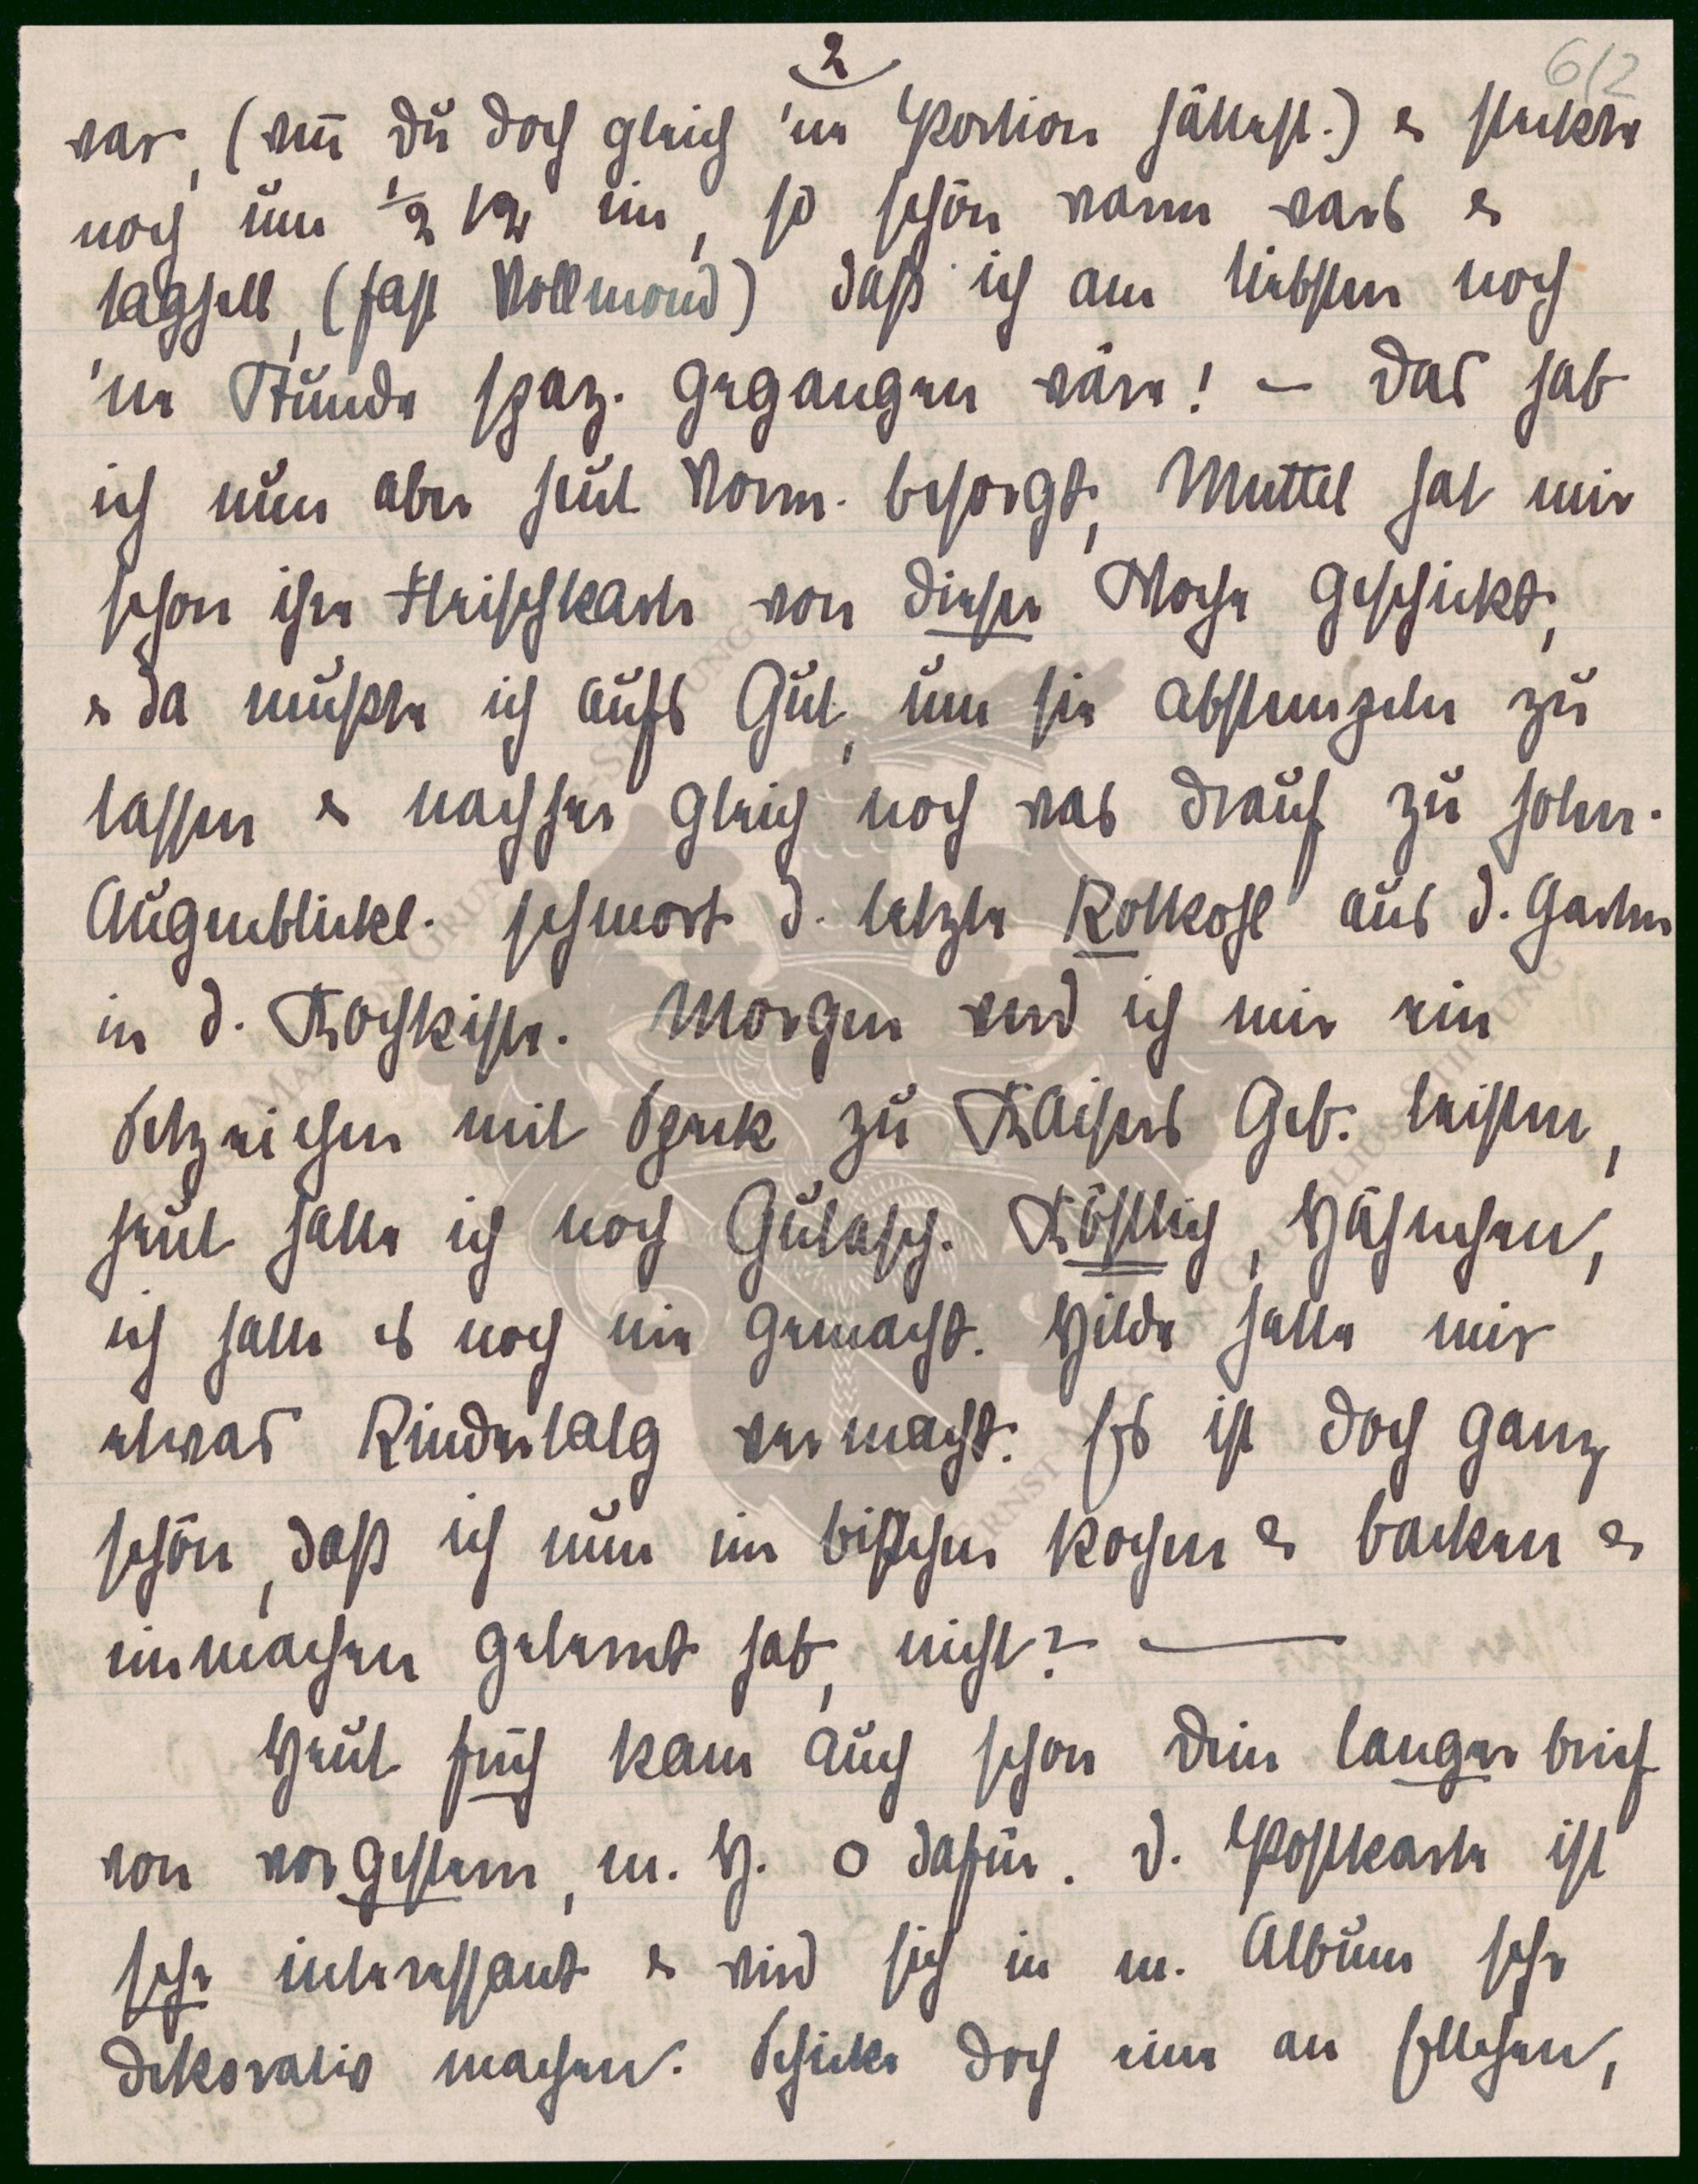 2
6/2
war, (wen̄ Du doch gleich 'ne Portion hättest.) & steckte
noch um ½ 12 ein, so schön warm wars &
taghell, (fast Vollmond) daß ich am liebsten noch
'ne Stunde spaz. gegangen wäre! – Das hab
ich nun aber heut Vorm. besorgt, Muttel hat mir
schon ihre Fleischkarte von dieser Woche geschickt,
& da mußte ich aufs Gut, um sie abstempeln zu
lassen & nachher gleich noch was drauf zu holen.
Augenblickl. schmort d. letzte Rotkohl aus d. Garten
in d. Kochkiste. Morgen werd ich mir ein
Setzeichen mit Speck zu Kaisers Geb. leisten,
heut hatte ich noch Gulasch. Köstlich, Hähnchen,
ich hatte es noch nie gemacht. Hilde hatte mir
etwas Rindertalg vermacht. Es ist doch ganz
schön, daß ich nun ein bißchen kochen & backen &
einmachen gelernt hab, nicht? —
Heut früh kam auch schon Dein langer brief
von vorgestern, m. H. O dafür. D. Postkarte ist
sehr interessant & wird sich in m. Album sehr
dekorativ machen. Schicke doch eine an Ellchen,